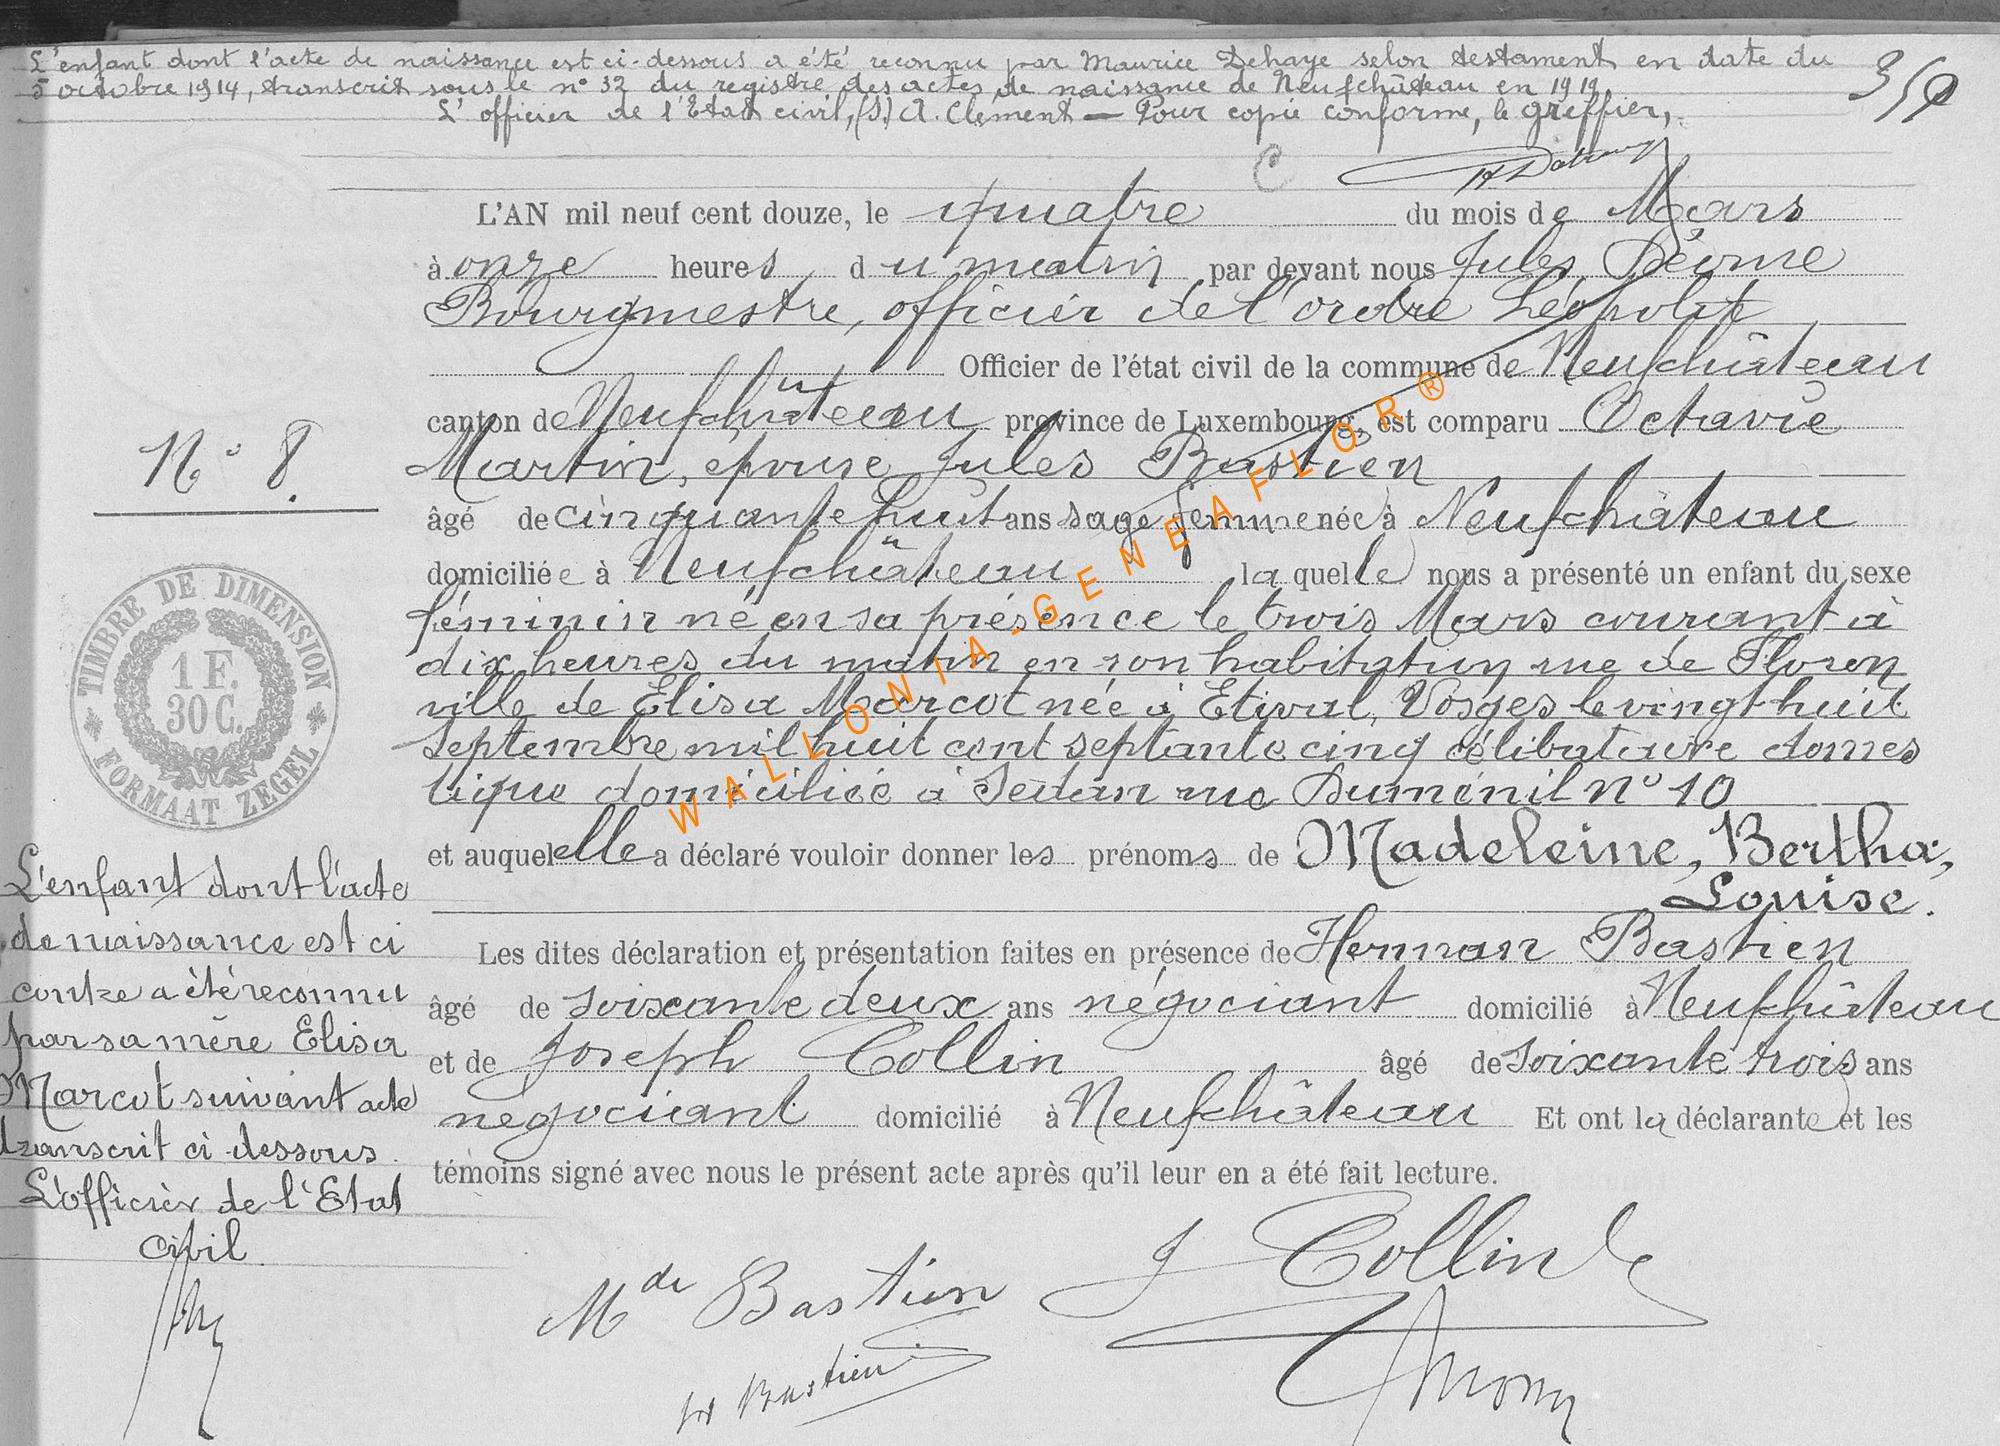 L'enfant dont l'acte de naissance est ci-dessous a été reconnu par Maurice Dehaye selon testament en date du
5 octobre 1914, transcrit sous le n° 32 du registre des actes de naissance de Neufchâteau en 1919
L'officier de l'Etat civil, (s) A. Clément — Pour copie conforme, le greffier,
L'AN mil neuf cent douze, le quatre du mois de Mars
à onze heures du matin par devant nous Jules
Bourgmestre, officier de l'ordre Léopold
Officier de l'état civil de la commune de Neufchâteau
canton de Neufchâteau province de Luxembourg, est comparu Octavie
Martin, épouse Jules Bastien
âgé de cinquante huit ans sage femme née à Neufchâteau
domiciliée à Neufchâteau laquelle nous a présenté un enfant du sexe
féminin né en sa présence le trois Mars courant à
dix heures du matin en son habitation rue de Floren
ville de Elisa Marcot née à Etival, Vosges le vingt huit
septembre mil huit cent septante cinq célibataire domes
tique domiciliée à Sedan rue Duménil N° 10
et auquel elle a déclaré vouloir donner les prénoms de Madeleine, Bertha,
Louise.
Les dites déclaration et présentation faites en présence de Herman Bastien
âgé de soixante deux ans négociant domicilié à Neufchâteau
et de Joseph Collin âgé de soixante trois ans
négociant domicilié à Neufchâteau Et ont la déclarante et les
témoins signé avec nous le présent acte après qu'il leur en a été fait lecture.
N° 8.
TIMBRE DE DIMENSION
1 F.
30 C.
FORMAAT ZEGEL
L'enfant dont l'acte
de naissance est ci
contre a été reconnu
par sa mère Elisa
Marcot suivant acte
transcrit ci-dessous.
L'officier de l'Etat
civil
Mde Bastien
J Collin
H Bastien
WALLONIA-GENEAFLOR®